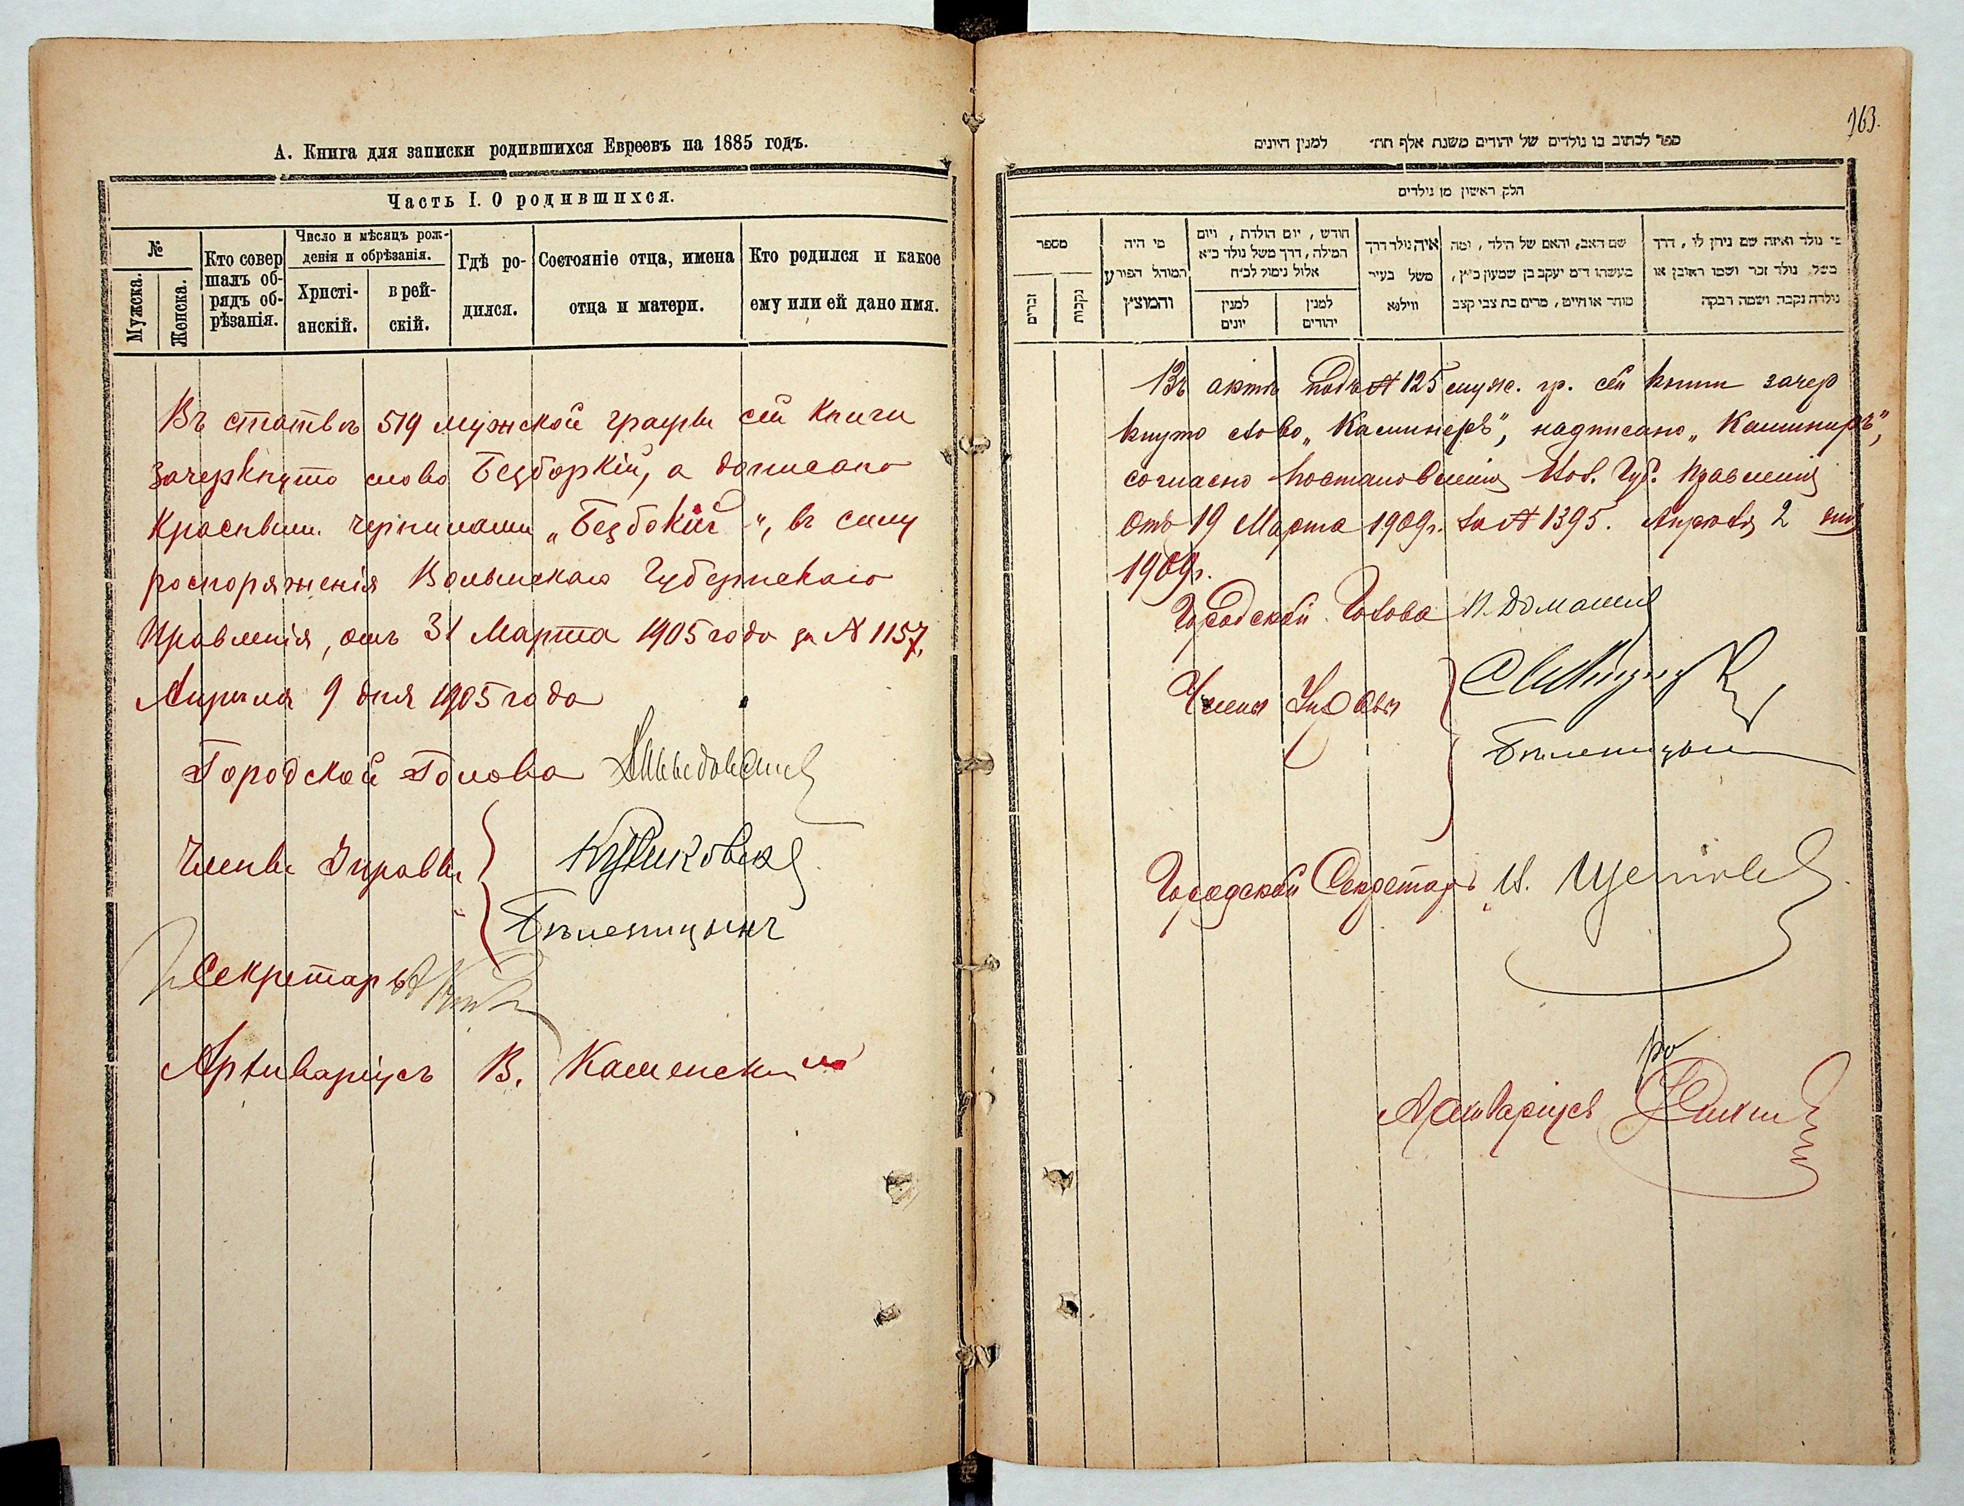 А. Книга для записки родившихся Евреевъ на 1885 годъ.
Часть I. О родившихся.
№
Мужска.
Женска.
Кто совер
шалъ об-
рядъ об-
рѣзанія.
Число и мѣсяцъ рож-
денія и обрѣзанія.
Христі-
анскій.
в рей-
скій.
Гдѣ ро-
дился.
Состояніе отца, имена
отца и матери.
Кто родился и какое
ему или ей дано имя.
Въ статьѣ 519 мужской графы сей книги
зачеркнуто слово Безборкій, а дописано
красными чернилами „Безбокій“, въ силу
распоряженія Волынскаго Губернскаго
Правленія, отъ 31 Марта 1905 года за № 1157,
Апрѣля 9 дня 1905 года
Городской Голова
Члены Управы
Бѣленицынъ
Секретарь
Архиваріусъ В. Каменскій
163.
ספר לכתוב בו נולדים של יהודים משנת אלף תת׳ למנין היונים
חלק ראשון מן נולדים
מספר
זכרים
נקבות
מי היה
המוהל הפורע
והמוצץ
חודש , יום הולדת , ויום
המילה , דרך משל נולד כ״א
אלול נימול לכ״ח
למנין
יונים
למנין
יהודים
איה נולד דרך
משל בעיר
ווילנא
שם האב, והאם של הילד , ומה
מעשהו ד״מ יעקב בן שמעון כ״ץ,
סוחר או חייט , מרים בת צבי קצב
מי נולד ואיזה שם ניתן לו , דרך
משל נולד זכר ושמו ראובן או
נולדה נקבה ושמה רבקה
Въ актѣ подъ № 125 муж. гр. сей книги зачер
кнуто слово „Каминеръ“, надписано „Кашниръ“,
согласно постановленія Вол. Губ. Правленія
отъ 19 Марта 1909 г. за № 1395. Апрѣля 2 дня
1909 г.
Городской Голова И. Домашев
Члены Управы
Бѣленицын
Городской Секретарь
Архиваріусъ